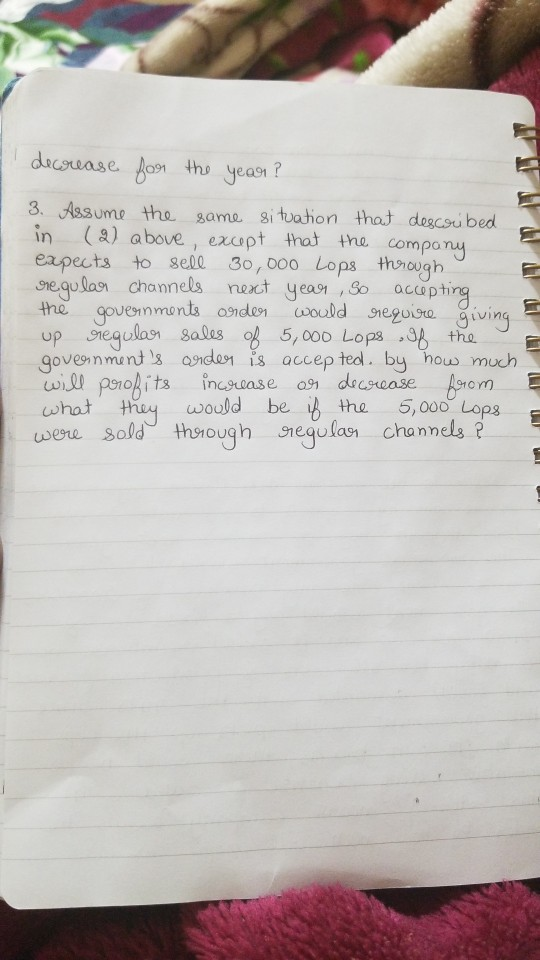 decrease for the year?
3. Assume the same situation that described
in (2) above, except that the company
expects to sell 30,000 Lops through
regular channels next year, So accepting
the governments order would require giving
up regular sales of 5,000 Lops. If the
government's order is accepted. by how much
will profits increase or decrease from
what they would be if the 5,000 Lops
were sold through regular channels?